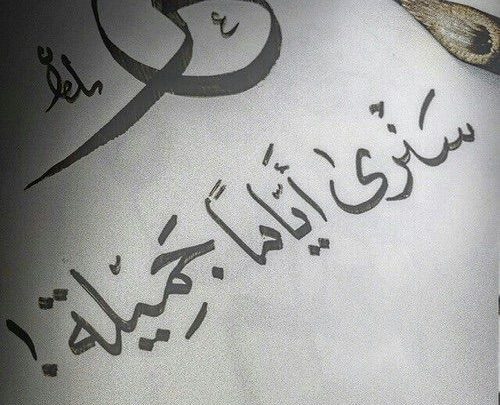 سَنَرىٰ أيَّاماً جَمِيْلة !